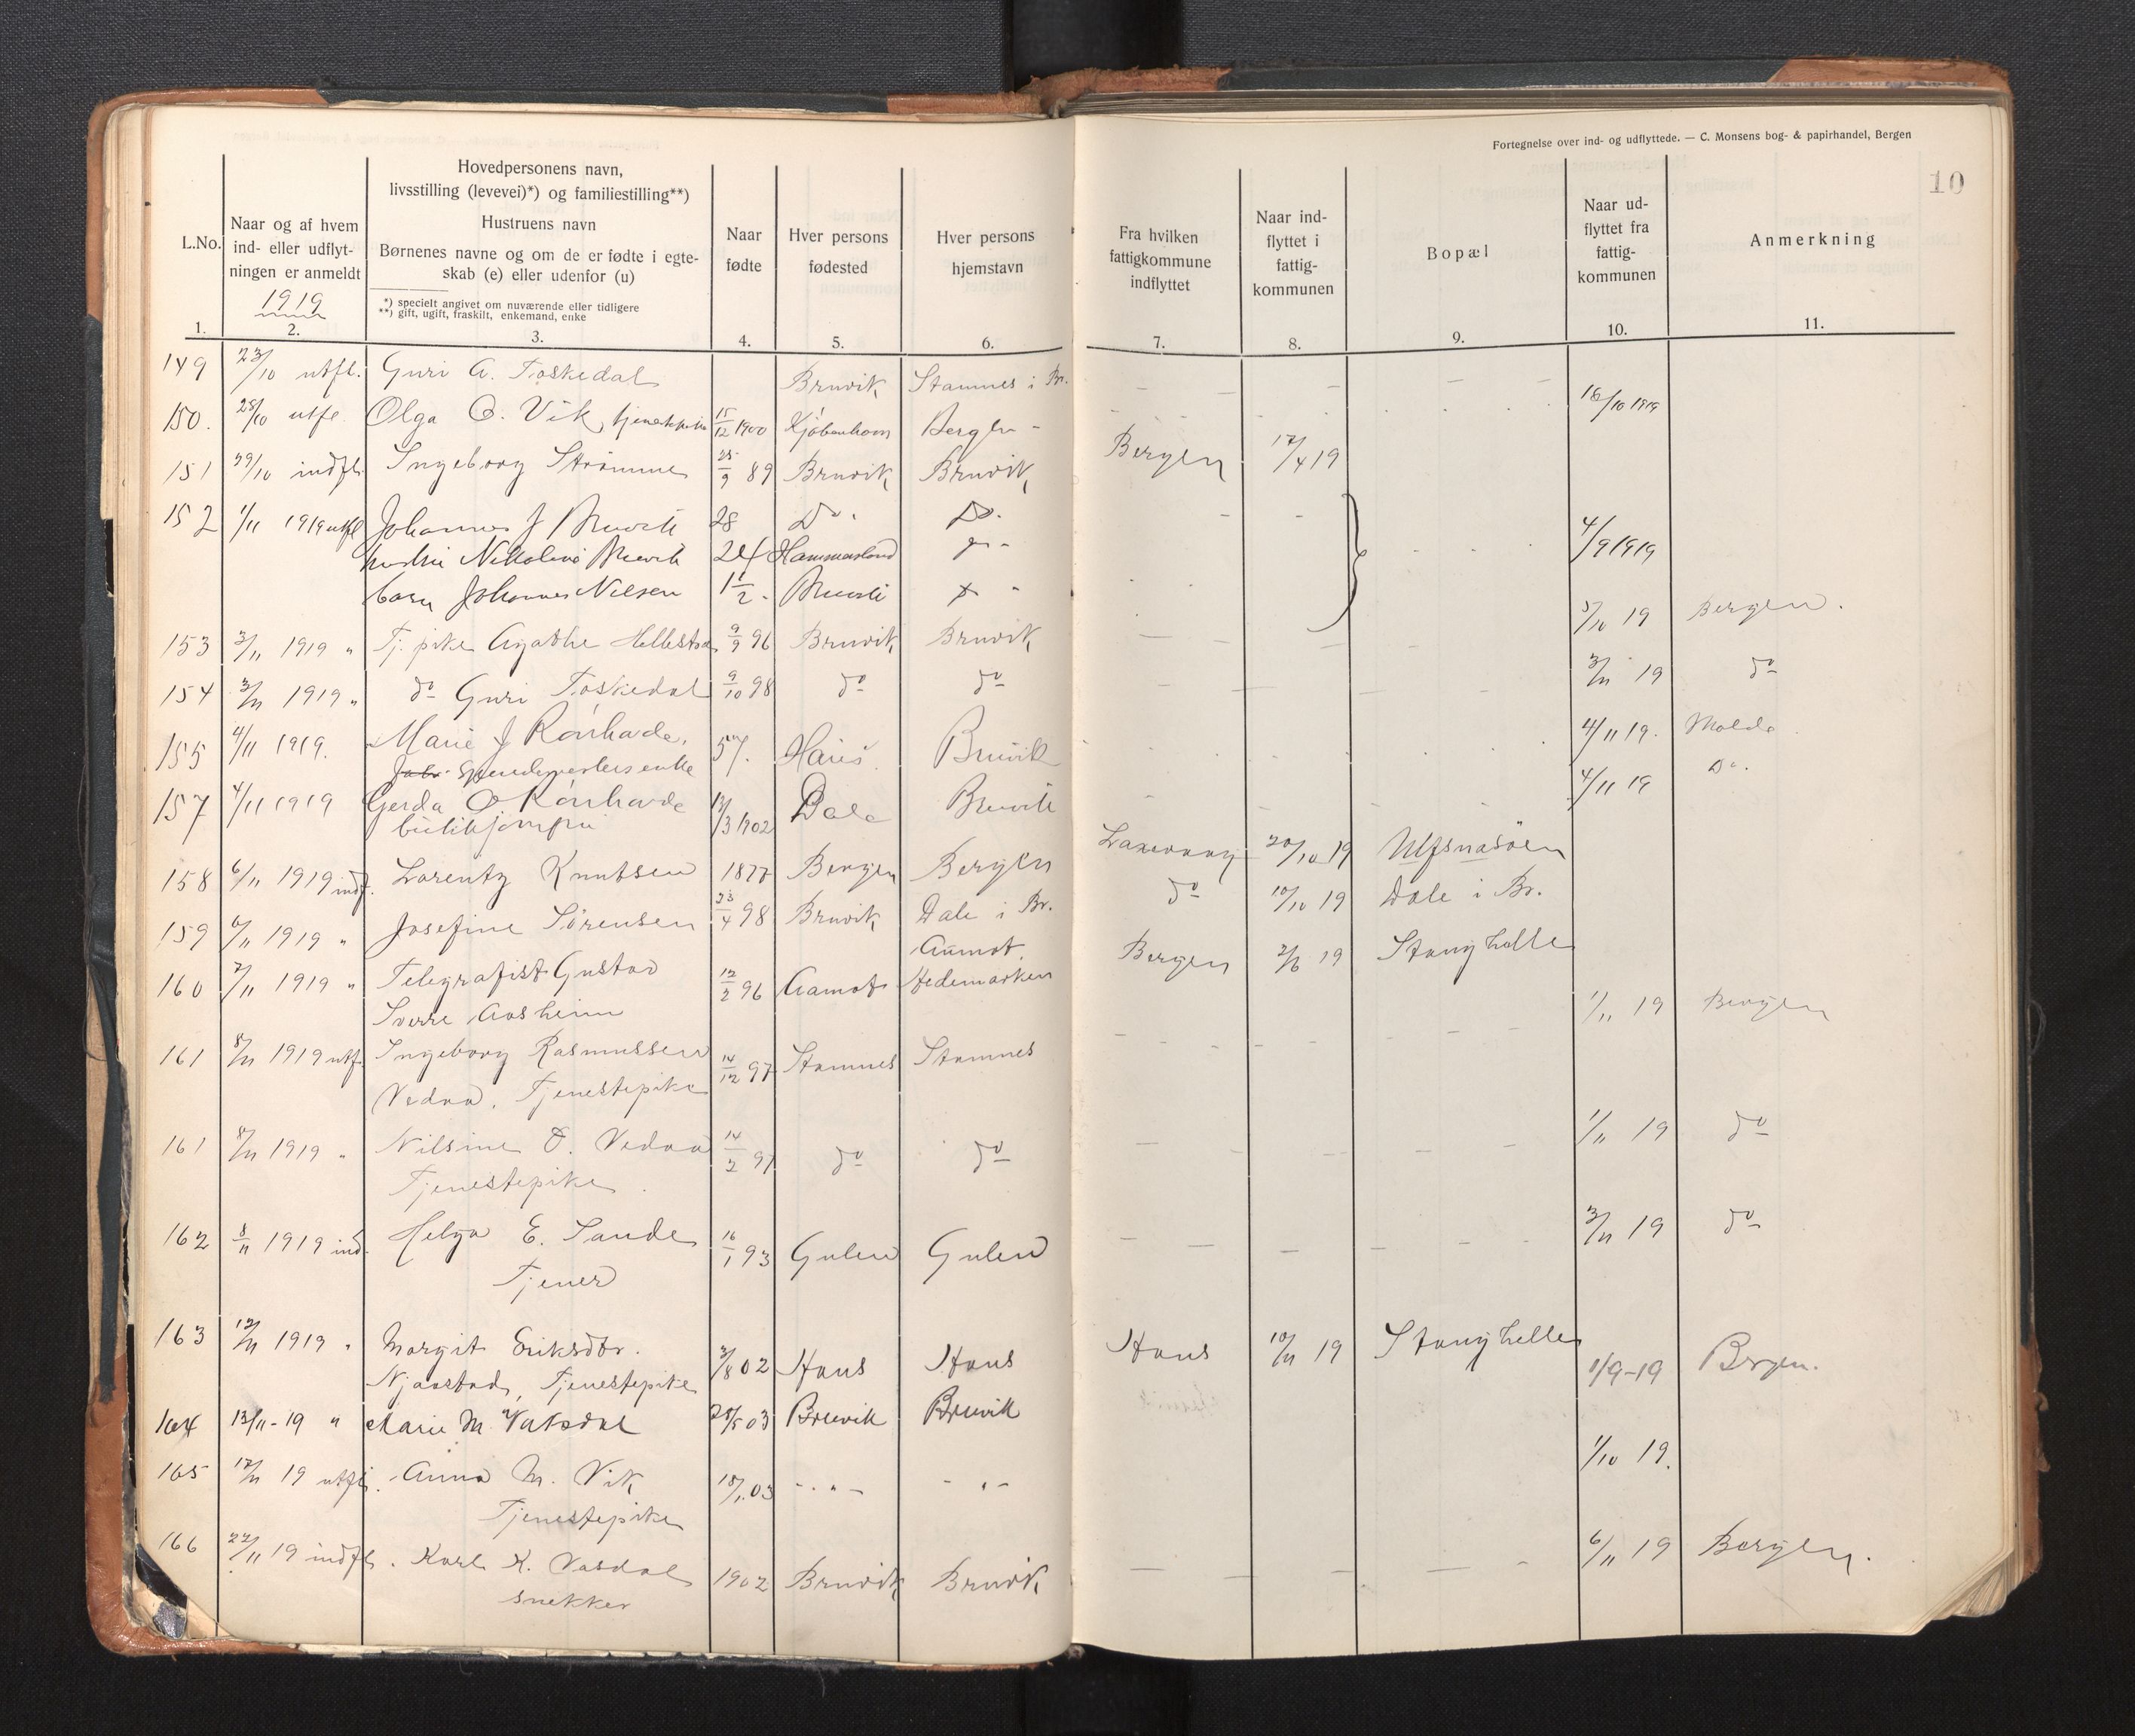 Fortegnelse over ind- og udflyttede. — C. Monsens bog- & papirhandel, Bergen
10
L.No.
Naar og af hvem ind- eller udflyt-ningen er anmeldt
1919
Hovedpersonens navn,
livsstilling (levevei)*) og familiestilling**)
Hustruens navn
Børnenes navne og om de er fødte i egte-
skab (e) eller udenfor (u)
*) specielt angivet om nuværende eller tidligere
**) gift, ugift, fraskilt, enkemand, enke
Naar fødte
Hver persons fødested
Hver persons hjemstavn
Fra hvilken fattigkommune indflyttet
Naar ind-flyttet i fattig-kommunen
Bopæl
Naar ud-flyttet fra fattig-kommunen
Anmerkning
1. 2. 3. 4. 5. 6. 7. 8. 9. 10. 11.
149 23/10 utfl. Guri A. Toskedal Bruvik Stamnes i Br. 16/10 1919
150. 28/10 utfl Olga O. Vik, 15/12 1900 Kjöbenhavn Bergen
151 29/10 indfl. Ingeborg Strömme 25/9 89 Bruvik Bruvik Bergen 17/4 19
152 1/11 1919 utfl Johannes J Bruvik 28 Do. Do. 4/9 1919
hustru Nikoline Bruvik 24 Hammersland
barn Johannes Nilsen 1 1/2 Bruvik
153 3/11 1919 " Tj. pike Agathe Hellestad 9/9 96 Bruvik Bruvik 5/10 19 Bergen.
154 3/11 1919 " do Guri Toskedal 9/10 98 do do 3/11 19 do
155 4/11 1919. Marie J Rönhade, 57. Haus Bruvik 4/11 19. Molde
157 4/11 1919 Gerda O Rönhade 13/3 1902 Dale Bruvik 4/11 19 Do.
butikjomfru
158 6/11 1919 indf. Lorentz Knutsen 1877 Bergen Bergen Laxevaag 20/10 19 Ulfsnesöen
159 6/11 1919 " Josefine Sörensen 23/4 98 Bruvik Dale i Br. do 10/10 19 Dale i Br.
160 7/11 1919 " Telegrafist Gustav 12/2 96 Aamot Aamot. Hedemarken Bergen 2/6 19 Stanghelle
Sverre Aasheim
161 8/11 1919 utf. Ingeborg Rasmussen 14/12 97 Stamnes Stamnes 1/11 19 Bergen
Vedaa, Tjenestepike
161 8/11 1919 " Nilsine O. Vedaa 14/2 97 do do 1/11 19 do
Tjenestepike.
162 8/11 1919 ind. Helga E. Sande 16/1 93 Gulen Gulen 3/11 19 do
Tjener
163 12/11 1919 " Margit Eriksdtr. 3/8 02 Haus Haus Haus 10/11 19 Stanghelle
Njaastad, Tjenestepike
164 13/11-19 " Marie M. Vaksdal 28/5 03 Bruvik Bruvik 1/9-19 Bergen.
165 17/11 19 utfl. Anna M. Vik 18/1 03 - " - - " - 1/10 19.
Tjenestepike
166 22/11 19 indfl. Karl K. Vasdal 1902 Bruvik Bruvik 6/11 19 Bergen.
snekker